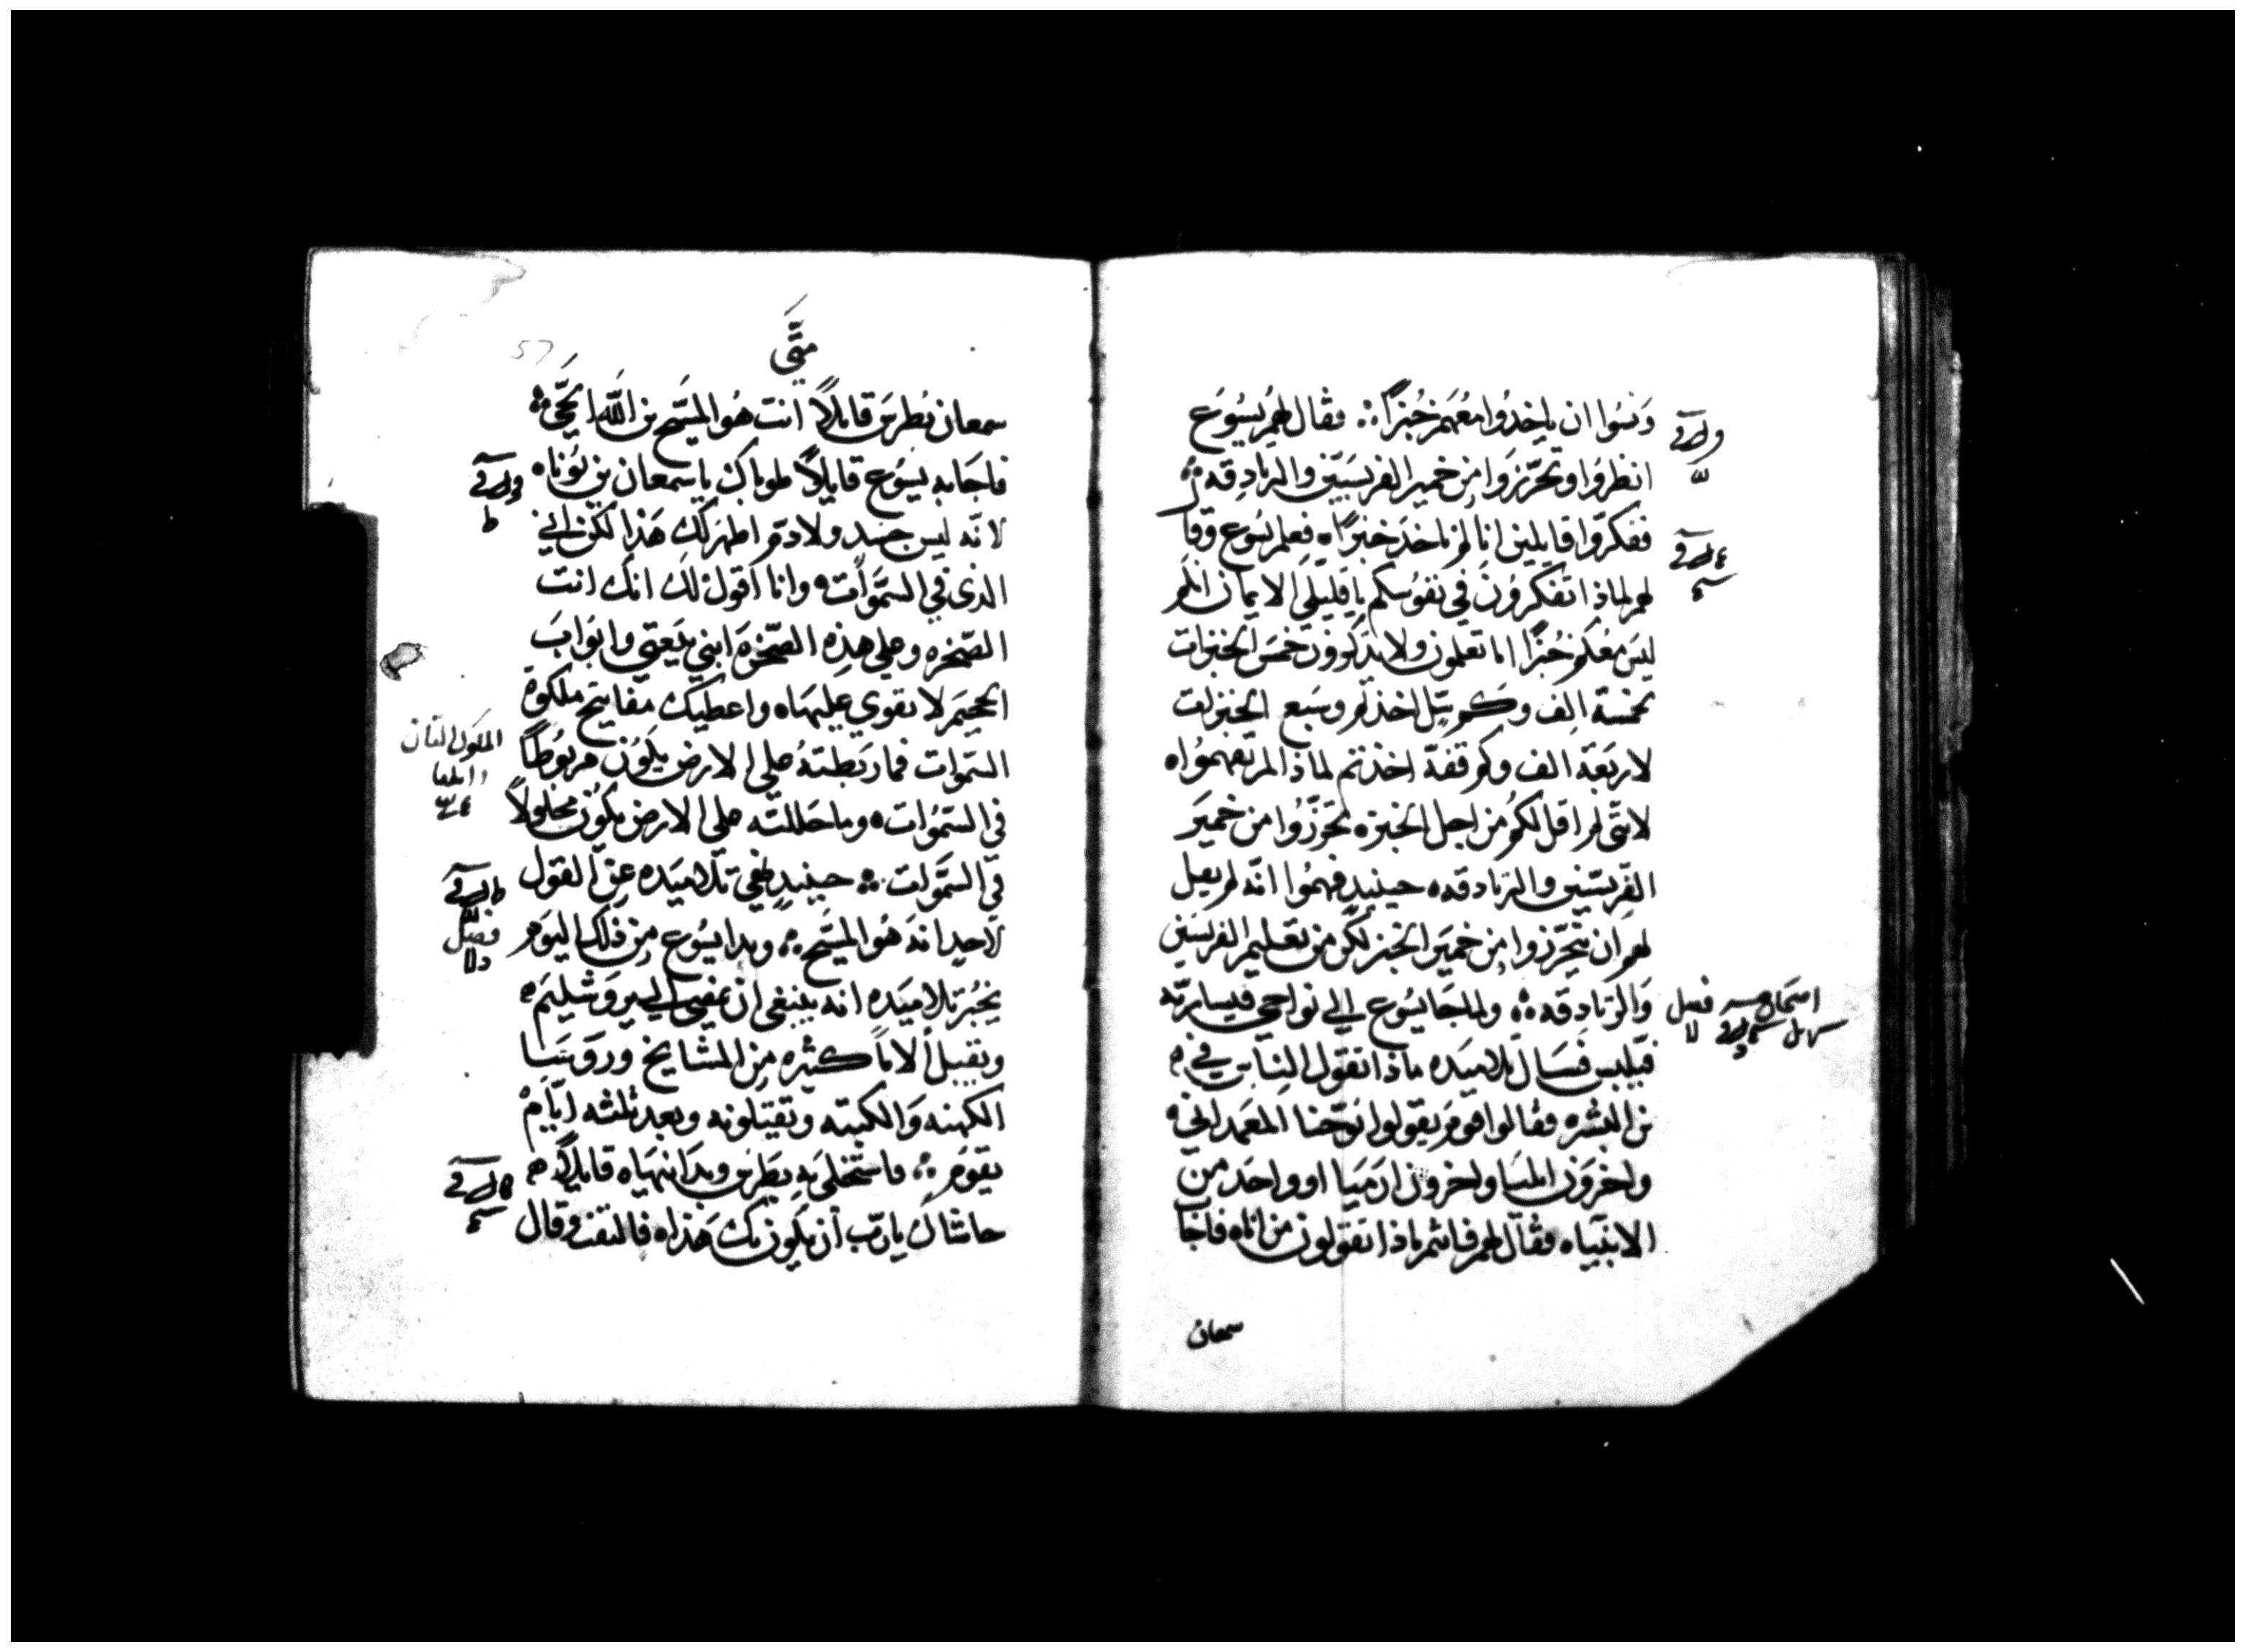 ونسوا ان ياخدوا معهم خبزًا ؞ فقال لهم يسوع
انظروا وتحرّزوا من خمير الفريسيّين والزنادقه ؞
ففكرّوا قايلين اننا لم ناخد خبزًا ه فعلم يسوع وقا
لهم لماذا تفكرون في نفوسكم يا قليلى الايمان انكم
ليس معكم خبزًا اما تعلمون ولا تذكرون خمس الخبزات
لخمسة الف وكم سل اخذتم وسبع الخبزات
لاربعة الف وكم قفة اخذتم لماذا لم تفهموا ه
لانّى لم اقل لكم من اجل الخبزه تحرّزوا من خمير
الفريسّين والزنادقه ه حينيدٍ فهموا انّه لم يقل
لهم ان يتحرّزوا من خمير الخبز لكن من تعليم الفريسين
والزنادقه ؞ ولما جا يسوع الي نواحي قيساريّه
فيلبس فسال تلاميده ماذا تقول الناس في
بن البشره فقالوا قوم يقولوا يوحنا المعمداني
واخرون ايليا واخرون ارميا او واحد من
الانبيا ه فقال لهم فانتم ماذا تقولون من انا ه فاجا
سمعان
فصل
متّى
57
سمعان بطرس قايلاً انت هو المسّيح بن اللّه الحىّ ؞
فاجابه يسوع قايلاً طوباك يا سمعان بن يونا ه
لانّه ليس جسد ولا دم اظهر لك هذا لكن ابي
الذى في السموات ه وانا اقول لك انك انت
الصّخره وعلي هذه الصّخره ابني بيعتي وابواب
الجحيم لا تقوي عليها ه واعطيك مفاتيح ملكوة
السموات فما ربطته علي الارض يكون مربوطًا
في السموات ه وما حللته علي الارض يكون محلولاً
في السموات ؞ حينيدٍ تلاميده عن القول
لاحد انه هو المسيح ؞ وبدا يسوع من ذلك اليوم
يخبر تلاميده انه ينبغى ان يمضي الي يروشليم ه
ويقبل الامًا كثيره من المشايخ وروسا
الكهنه والكتبه وتقتلونه وبعد ثلثه ايام
يقوم ؞ فاستخلي به بطرس وبدا ينهاه قايلاً
حاشاك يا ربّ ان يكون لك هذا ه فالتفت وقال
فصل